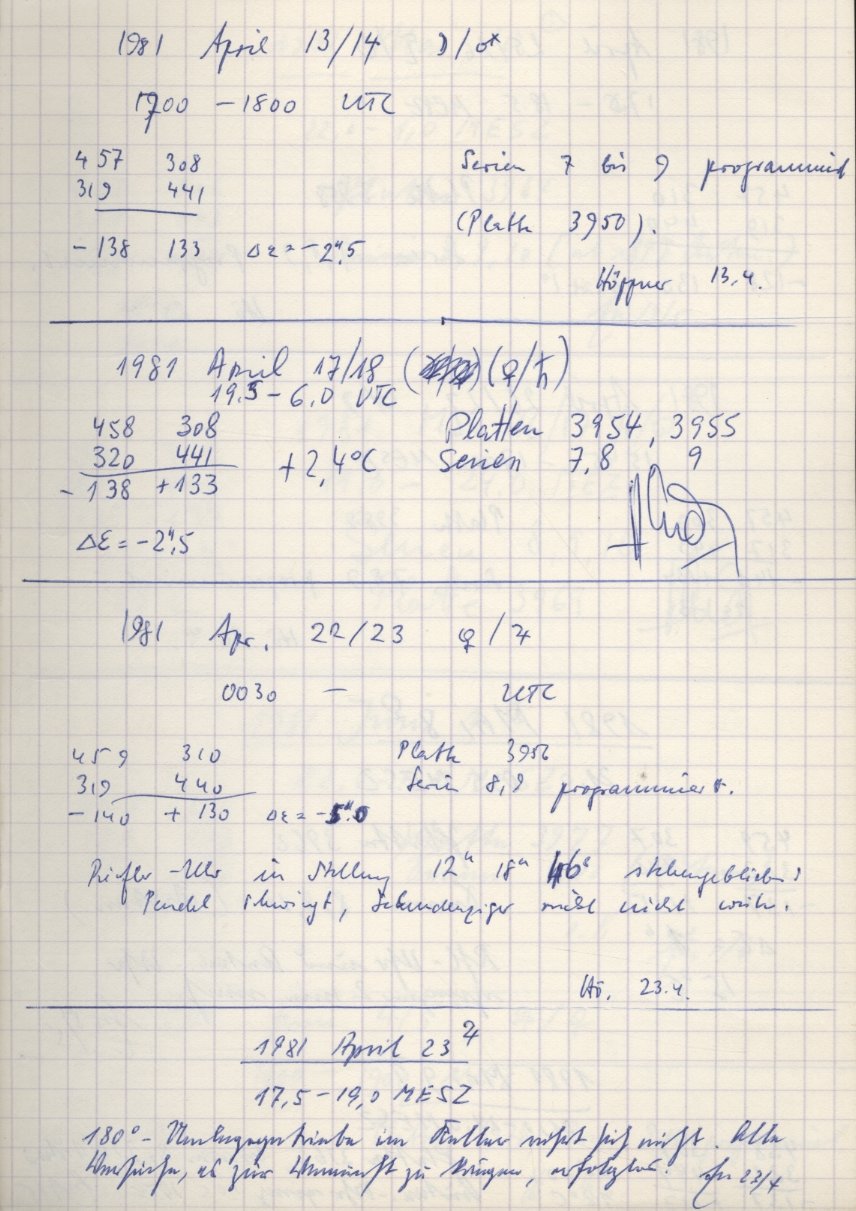 1981 April 13/14 ☽/♂
1700 – 1800 UTC
457 308 Serien 7 bis 9 programmiert
319 441 (Platte 3950).
-138 133 Δε = -2",5
Höppner 13.4.
1981 April 17/18 (♀/♄)
19.5 – 6,0 UTC
458 308 Platten 3954, 3955
320 441 +2,4°C Serien 7,8 9
-138 +133
Δε = -2",5
1981 Apr. 22/23 ☿/♃
0030 – UTC
459 310 Platte 3956
319 440 Serien 8,9 programmiert.
-140 +130 Δε = -5",0
Riefler-Uhr in Stellung 12h 18m 46s stehengeblieben!
Pendel schwingt, Sekundenzeiger rückt nicht weiter.
Hö. 23.4.
1981 April 23 ♃
17,5 – 19,0 MESZ
180°- im Keller rührt sich nicht. Alle
Versuche, es zur Vernunft zu bringen, erfolglos. 23/4